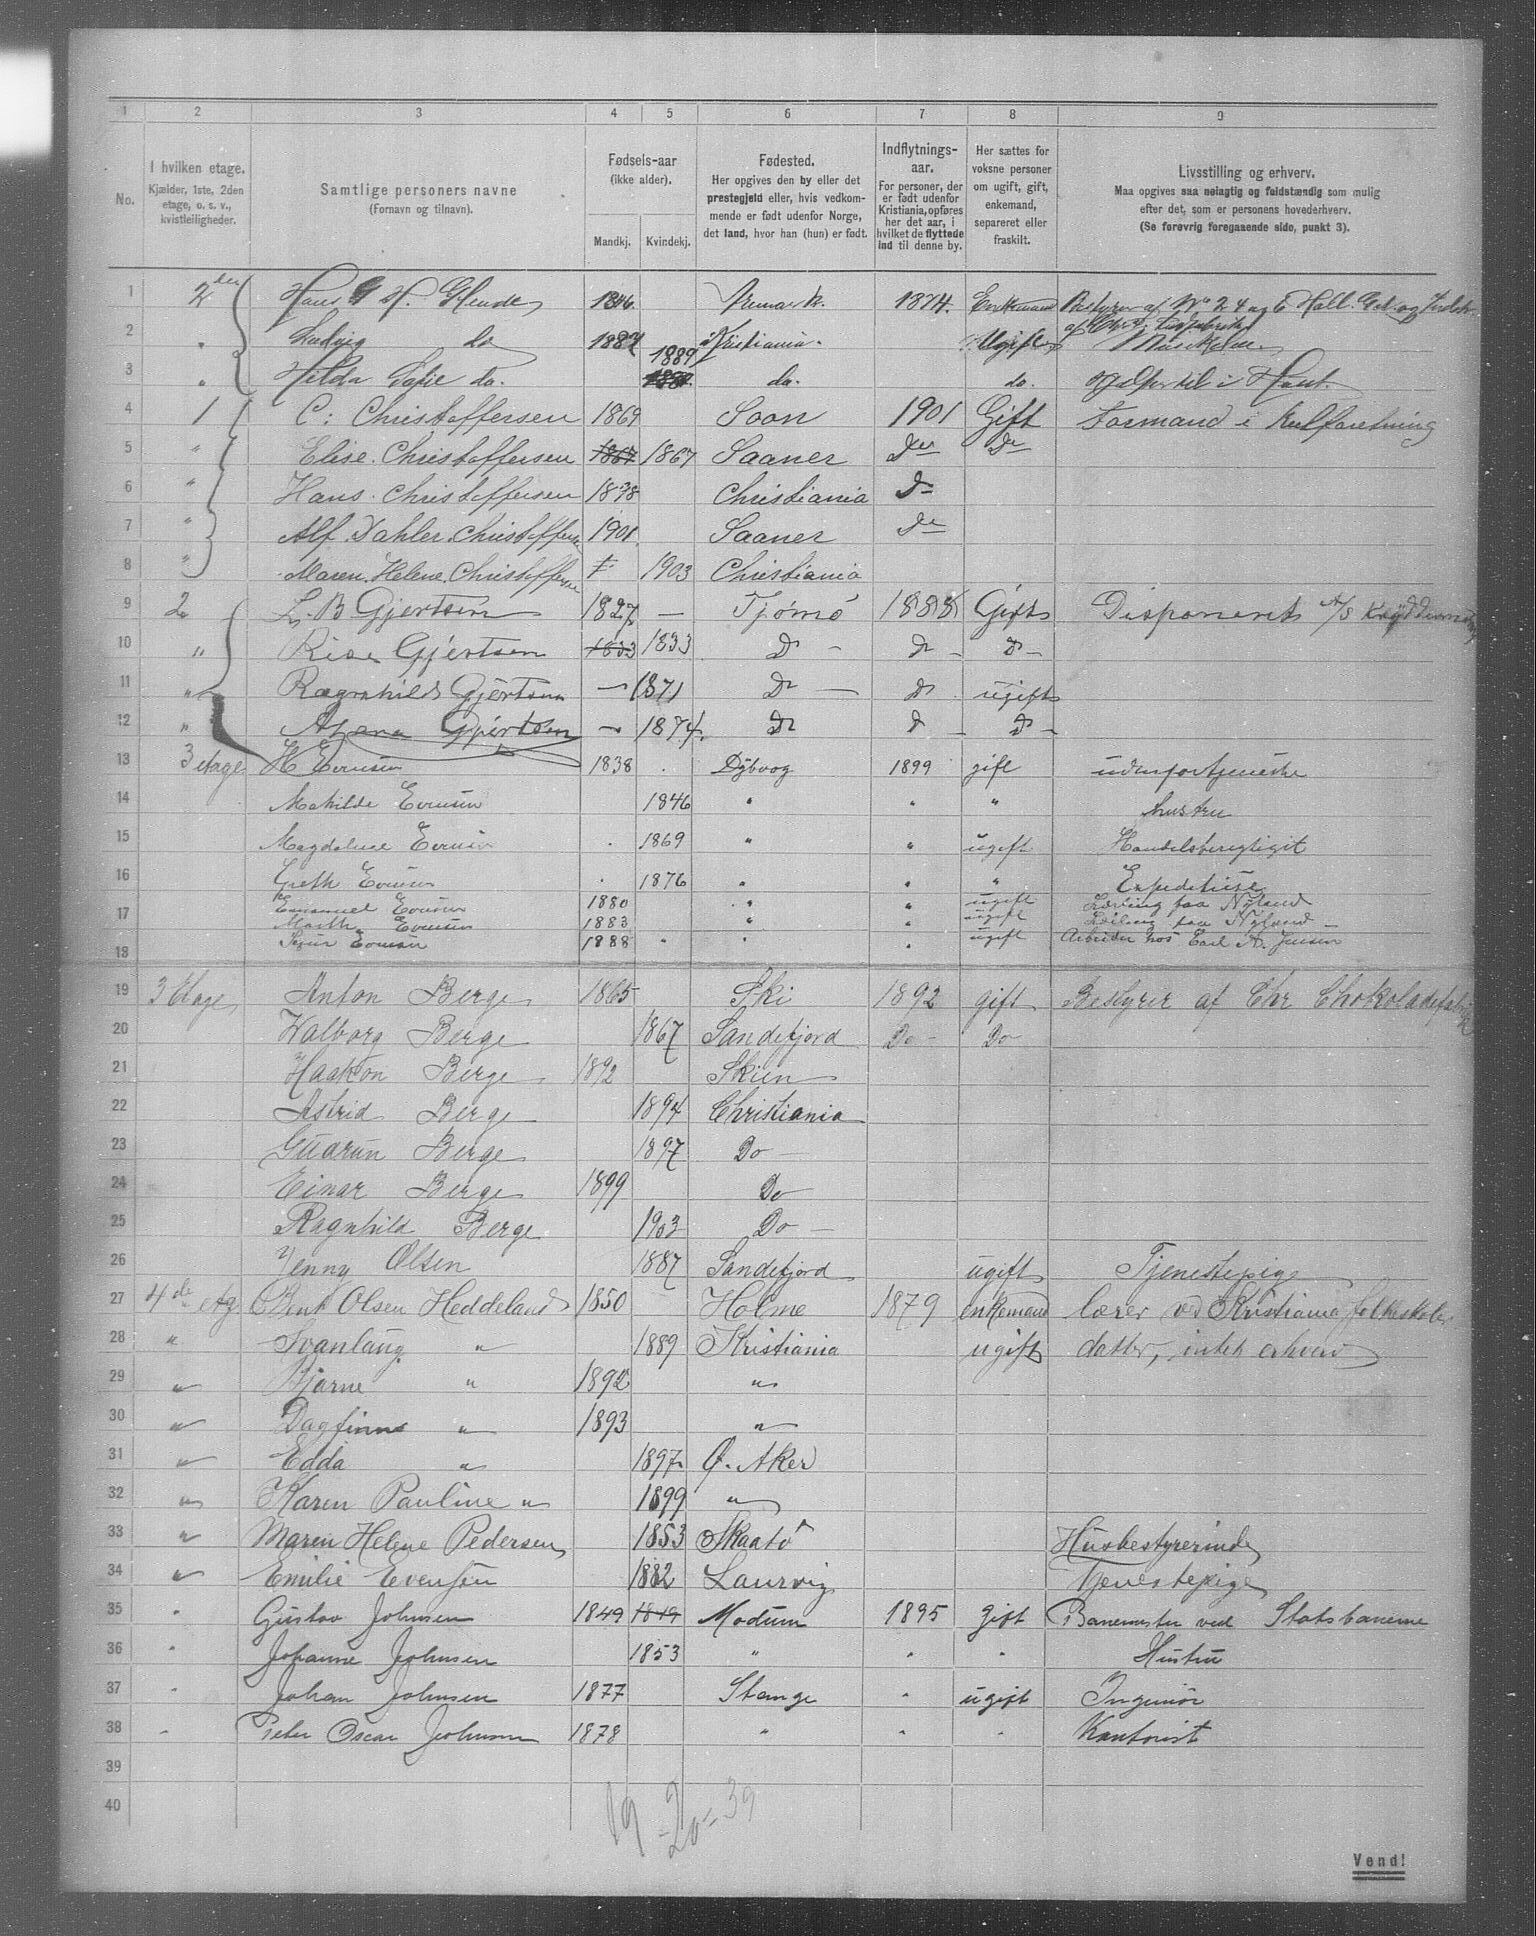 1 2 3 4 5 6 7 8 9
No.
I hvilken etage.
Kjælder, 1ste, 2den
etage, o. s. v.,
kvistleiligheder.
Samtlige personers navne
(Fornavn og tilnavn).
Fødsels-aar
(ikke alder).
Mandkj. Kvindekj.
Fødested.
Her opgives den by eller det
prestegjeld eller, hvis vedkom-
mende er født udenfor Norge,
det land, hvor han (hun) er født.
Indflytnings-
aar.
For personer, der
er født udenfor
Kristiania, opføres
her det aar, i
hvilket de flyttede
ind til denne by.
Her sættes for
voksne personer
om ugift, gift,
enkemand,
separeret eller
fraskilt.
Livsstilling og erhverv.
Maa opgives saa nøiagtig og fuldstændig som mulig
efter det, som er personens hovederhverv.
(Se forøvrig foregaaende side, punkt 3).
1 2den Hans G H. 1846. Aremark. 1874. Enkemand
2 " Ludvig do 1887 Kristiania. Ugift
3 " Hilda Sofie do. 1889 do. do. Hjælper til i Huset
4 1 C: Christoffersen 1869 Soon 1901 Gift Formand i Kulforetning
5 " Elise. Christoffersen 1867 1867 Saaner Do Do
6 " Hans. Christoffersen 1898 Christiania Do
7 " Alf. Dahler. Christoffersen 1901. Saaner Do
8 " Maren. Helene. Christoffersen 1903 Christiania
9 2 L. B Gjertsen 1827 — Tjømö 1888 Gift Disponent A/S
10 " Gjertsen 1833 1833 Do — Do — Do —
11 " Ragnhild Gjertsen — 1871 Do — Do ugift
12 " Gjertsen — 1874. Do Do — Do —
13 3 etage H Evensen 1838 Dybvog 1899 gift
14 Mathilde Evensen 1846 " " " hustru
15 Magdalene Evensen 1869 " " ugift
16 Greth Evensen 1876 " " " Expeditrise
17 Emanuel Evensen 1880 " " ugift Lærling paa Nyland
Evensen 1883 " " ugift Lærling paa Nyland
18 Evensen 1888 " " ugift Arbeider hos Carl A. Jensen
19 3 Etage Anton Berge 1865 Ski 1892 gift Bestyrer af Chr Chokoladefabrik
20 Walborg Berge 1867 Sandefjord Do — Do
21 Haakon Berge 1892 Skien
22 Astrid Berge 1894 Christiania
23 Gudrun Berge 1897 Do —
24 Einar Berge 1899 Do
25 Ragnhild Berge 1903 Do —
26 Jenny Olsen 1887 Sandefjord ugift Tjenestepige
27 4de etg Bent Olsen Heddeland 1850 Holme 1879 enkemand lærer ved Kristiania folkeskoler
28 " Svanlaug " 1889 Kristiania ugift datter, intet erhverv
29 " Bjarne " 1892 "
30 " Dagfinn " 1893 "
31 " Edda " 1897 Ø. Aker
32 " Karen Pauline " 1899 "
33 " Maren Helene Pedersen 1853 Skaatö Husbestyrerinde
34 " Emilie Evensen 1882 Laurvig Tjenestepige
35 " Gustav Johnsen 1849 1849 Modum 1895 gift Banemester ved Statsbanerne
36 " Johanne Johnsen 1853 " " " Hustru
37 " Johan Johnsen 1877 Stange " ugift Ingeniör
38 " Peter Oscar Johnsen 1878 " " " Kontorist
39
40
19 – 20 – 39
Vend!